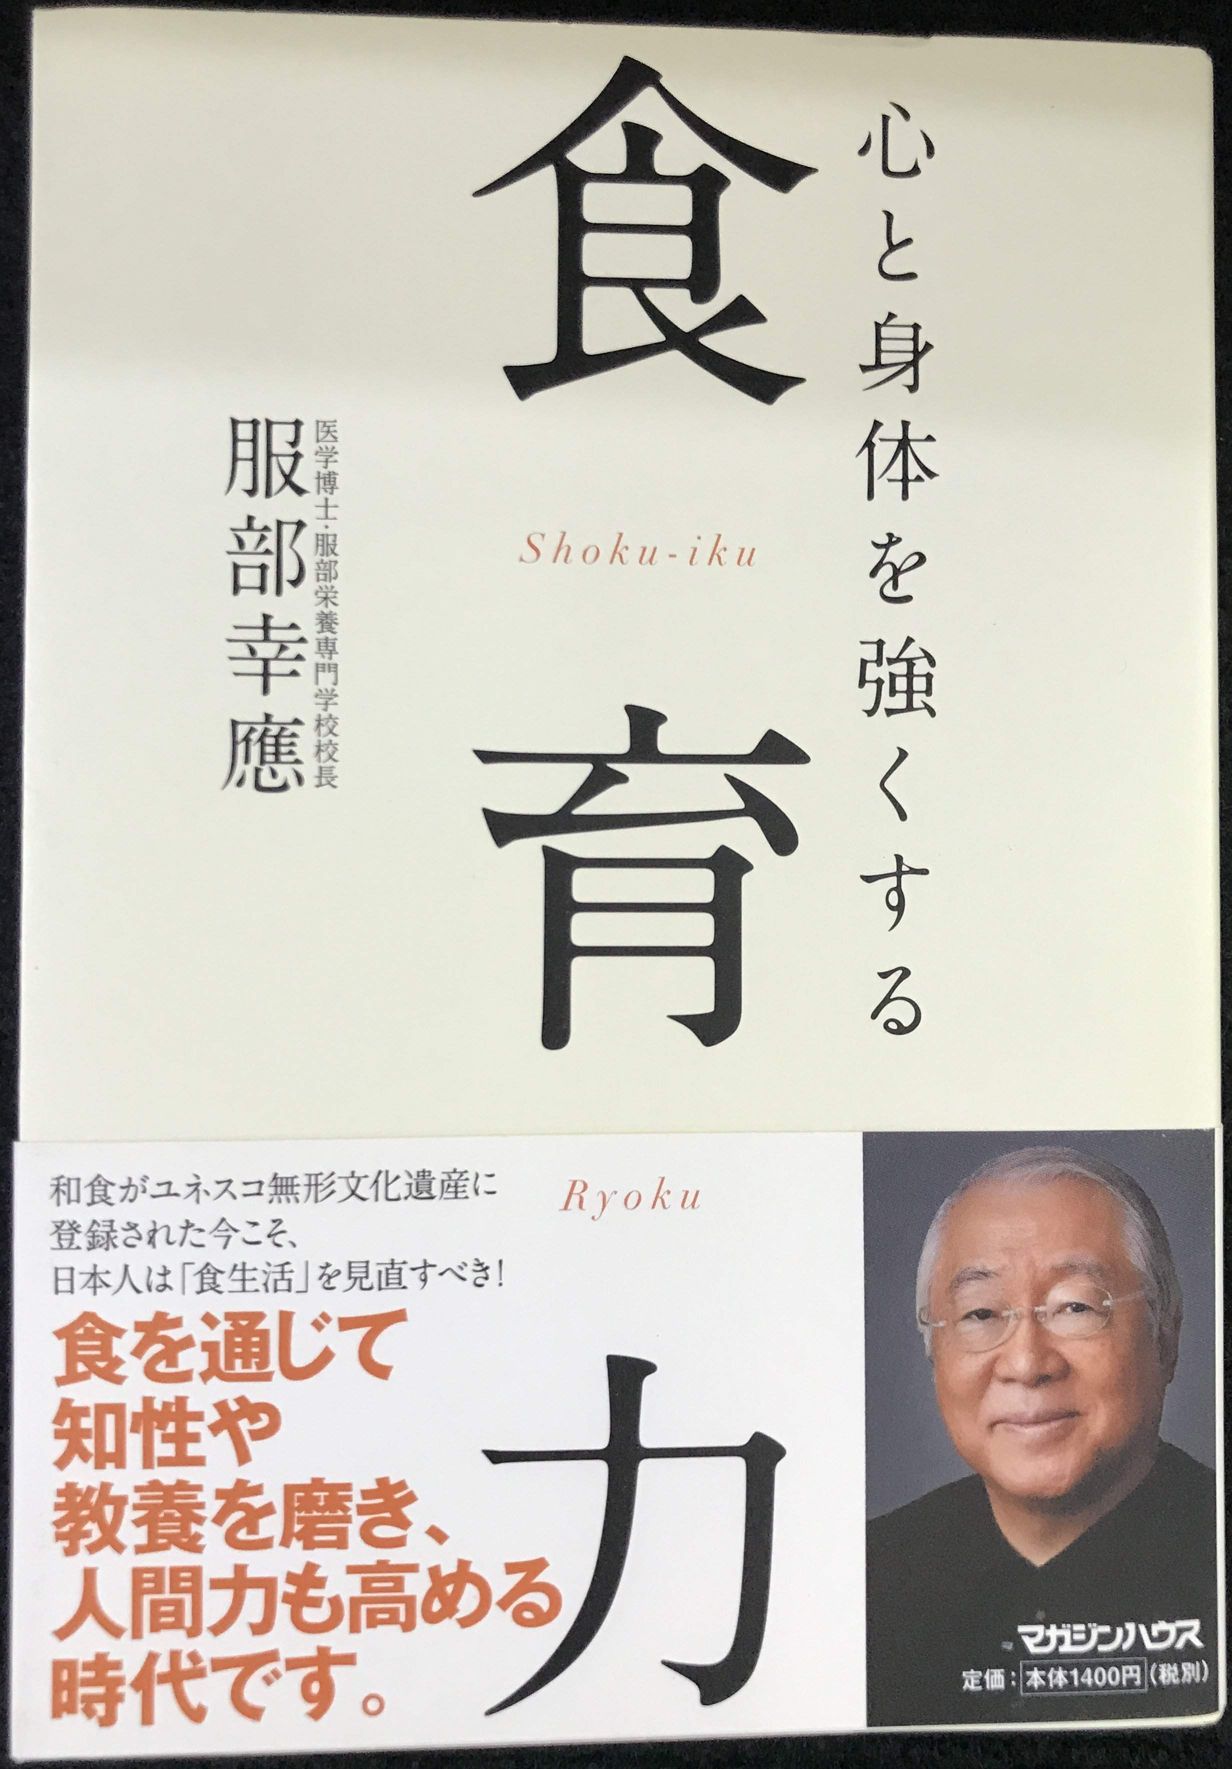 心と身体を強くする
食育力
Shoku-iku
Ryoku
医学博士・服部栄養専門学校校長
服部幸應
和食がユネスコ無形文化遺産に
登録された今こそ、
日本人は「食生活」を見直すべき!
食を通じて
知性や
教養を磨き、
人間力も高める
時代です。
マガジンハウス
定価:本体1400円(税別)